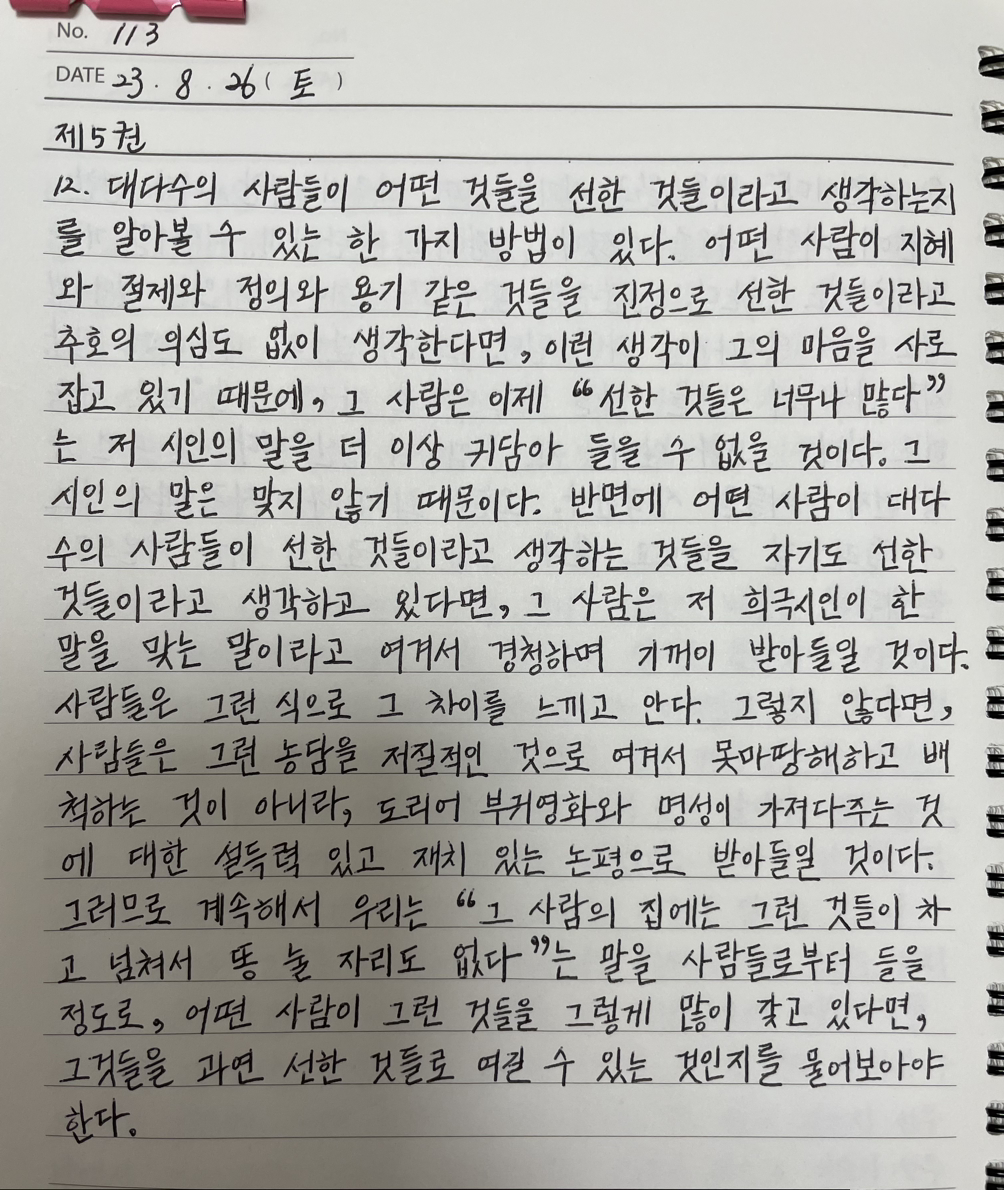 No. 113
DATE 23. 8. 26 (토)
제5권
12. 대다수의 사람들이 어떤 것들을 선한 것들이라고 생각하는지
를 알아볼 수 있는 한 가지 방법이 있다. 어떤 사람이 지혜
와 절제와 정의와 용기 같은 것들을 진정으로 선한 것들이라고
추호의 의심도 없이 생각한다면, 이런 생각이 그의 마음을 사로
잡고 있기 때문에, 그 사람은 이제 “선한 것들은 너무나 많다”
는 저 시인의 말을 더 이상 귀담아 들을 수 없을 것이다. 그
시인의 말은 맞지 않기 때문이다. 반면에 어떤 사람이 대다
수의 사람들이 선한 것들이라고 생각하는 것들을 자기도 선한
것들이라고 생각하고 있다면, 그 사람은 저 희극시인이 한
말을 맞는 말이라고 여겨서 경청하며 기꺼이 받아들일 것이다.
사람들은 그런 식으로 그 차이를 느끼고 안다. 그렇지 않다면,
사람들은 그런 농담을 저질적인 것으로 여겨서 못마땅해하고 배
척하는 것이 아니라, 도리어 부귀영화와 명성이 가져다주는 것
에 대한 설득력 있고 재치 있는 논평으로 받아들일 것이다.
그러므로 계속해서 우리는 “그 사람의 집에는 그런 것들이 차
고 넘쳐서 똥 눌 자리도 없다”는 말을 사람들로부터 들을
정도로, 어떤 사람이 그런 것들을 그렇게 많이 갖고 있다면,
그것들을 과연 선한 것들로 여길 수 있는 것인지를 물어보아야
한다.